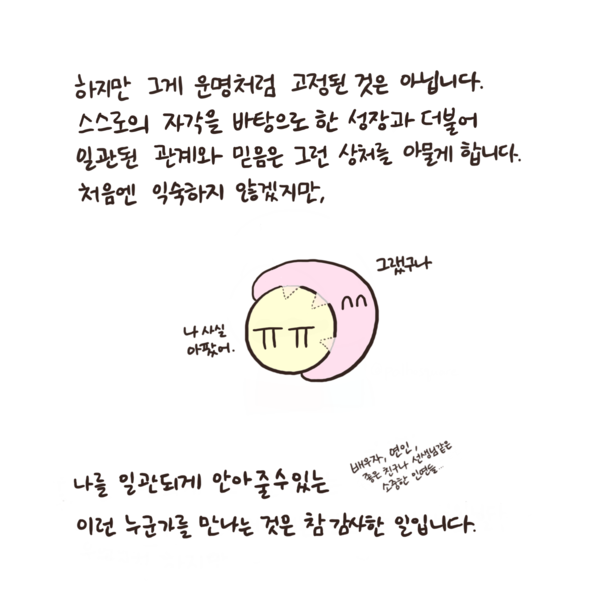 하지만 그게 운명처럼 고정된 것은 아닙니다.
스스로의 자각을 바탕으로 한 성장과 더불어
일관된 관계와 믿음은 그런 상처를 아물게 합니다.
처음엔 익숙하지 않겠지만,
그랬구나
나 사실
아팠어.
ㅠㅠ
배우자, 연인,
좋은 친구나 선생님같은
소중한 인연들...
나를 일관되게 안아줄수있는
이런 누군가를 만나는 것은 참 감사한 일입니다.